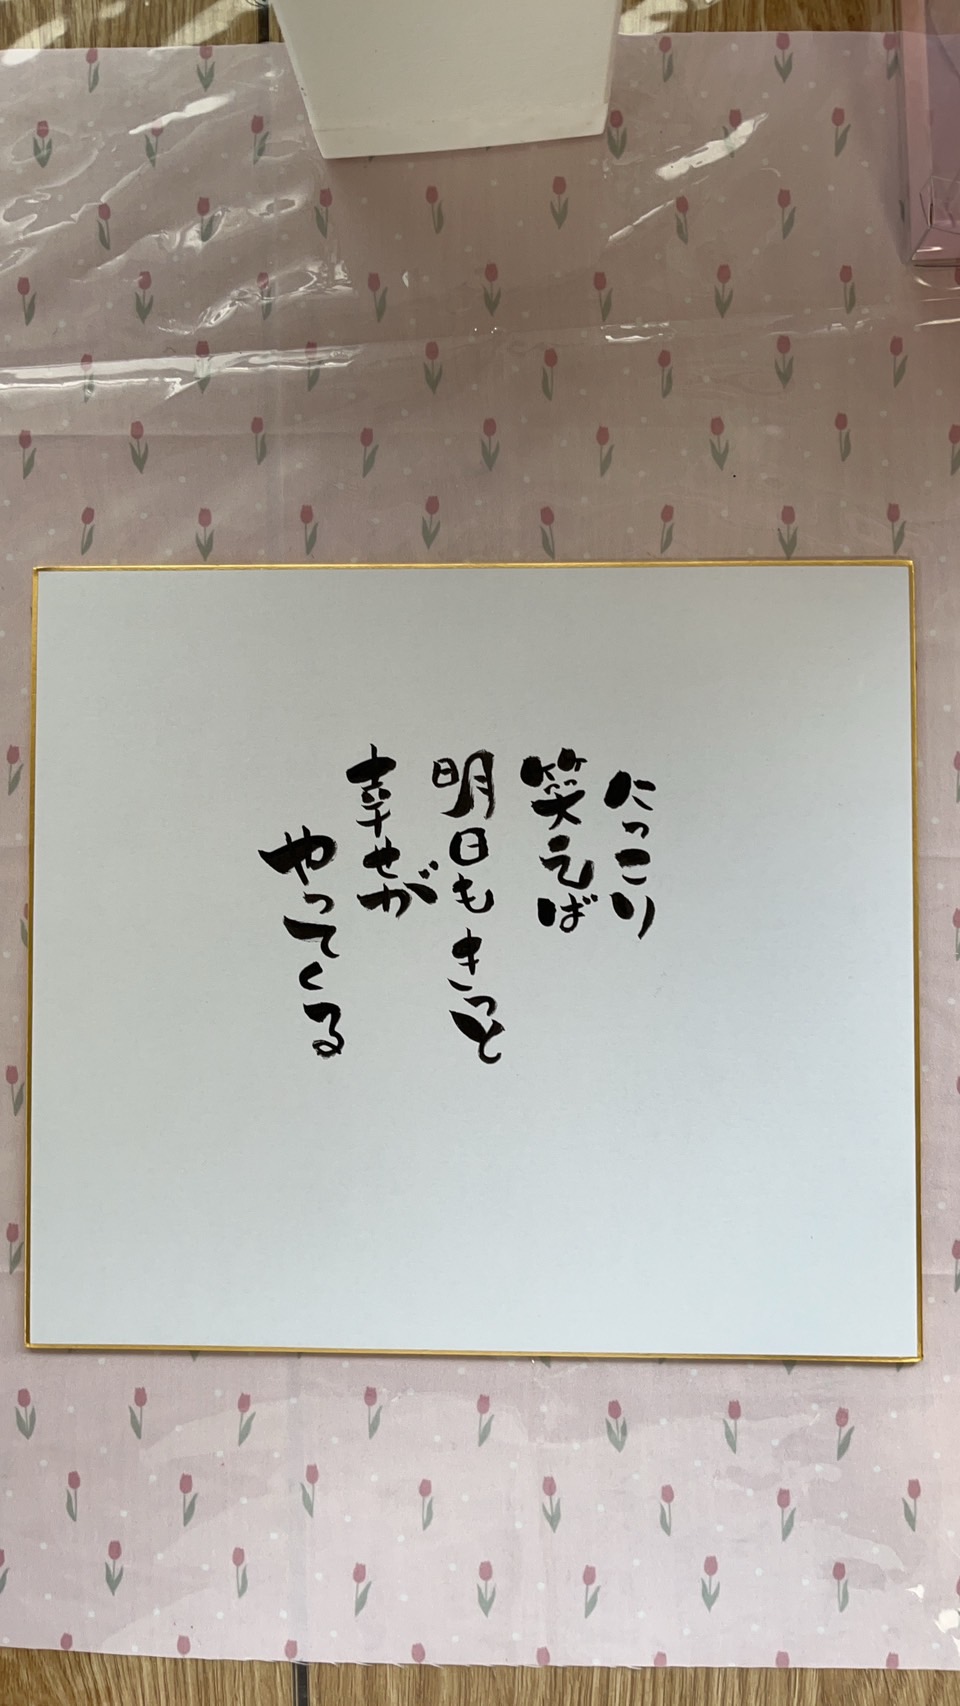 にっこり
笑えば
明日もきっと
幸せが
やってくる